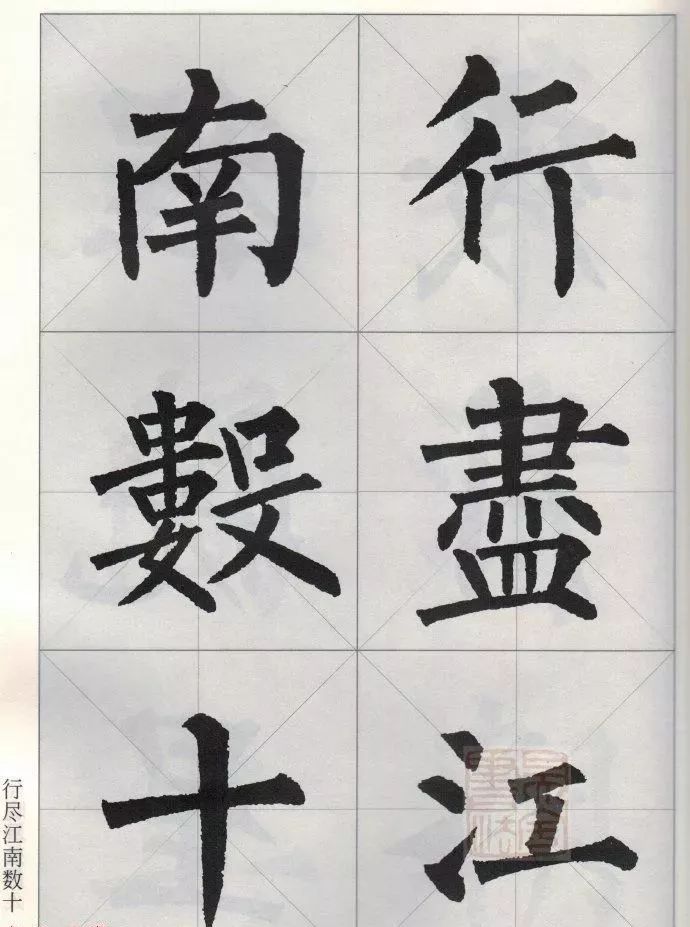 行盡江
南數十
行尽江南数十